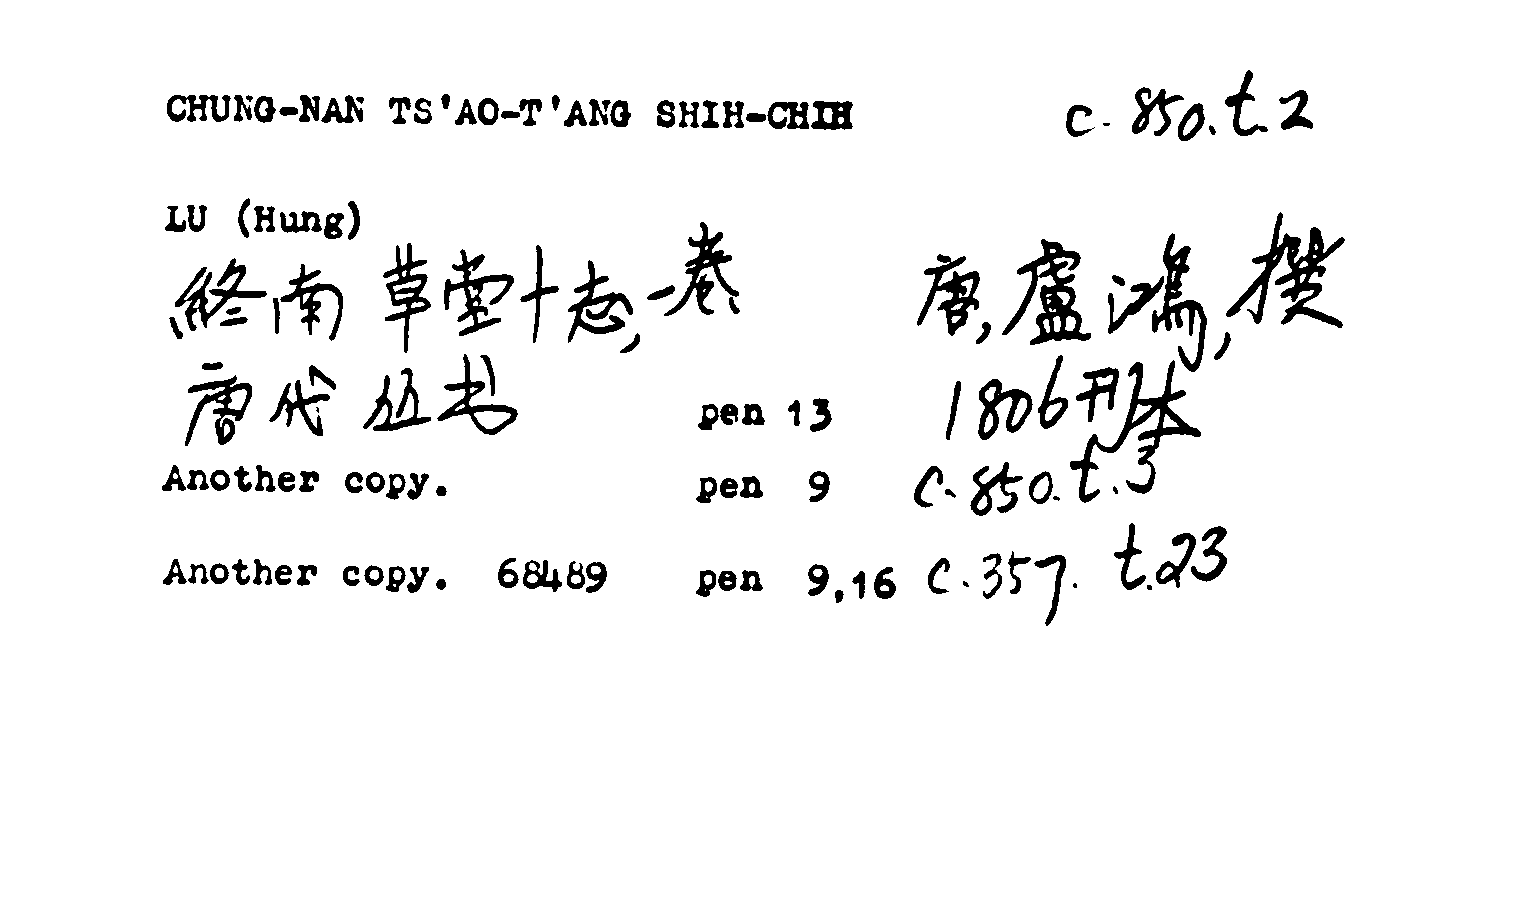 CHUNG-NAN TS'AO-T'ANG SHIH-CHIH c. 850. t. 2
LU (Hung)
終南草堂十志, 一卷 唐, 盧鴻, 撰
唐代丛书 pen 13 1806刊本
Another copy. pen 9 c. 850. t. 3
Another copy. 68489 pen 9,16 c. 357. t. 23